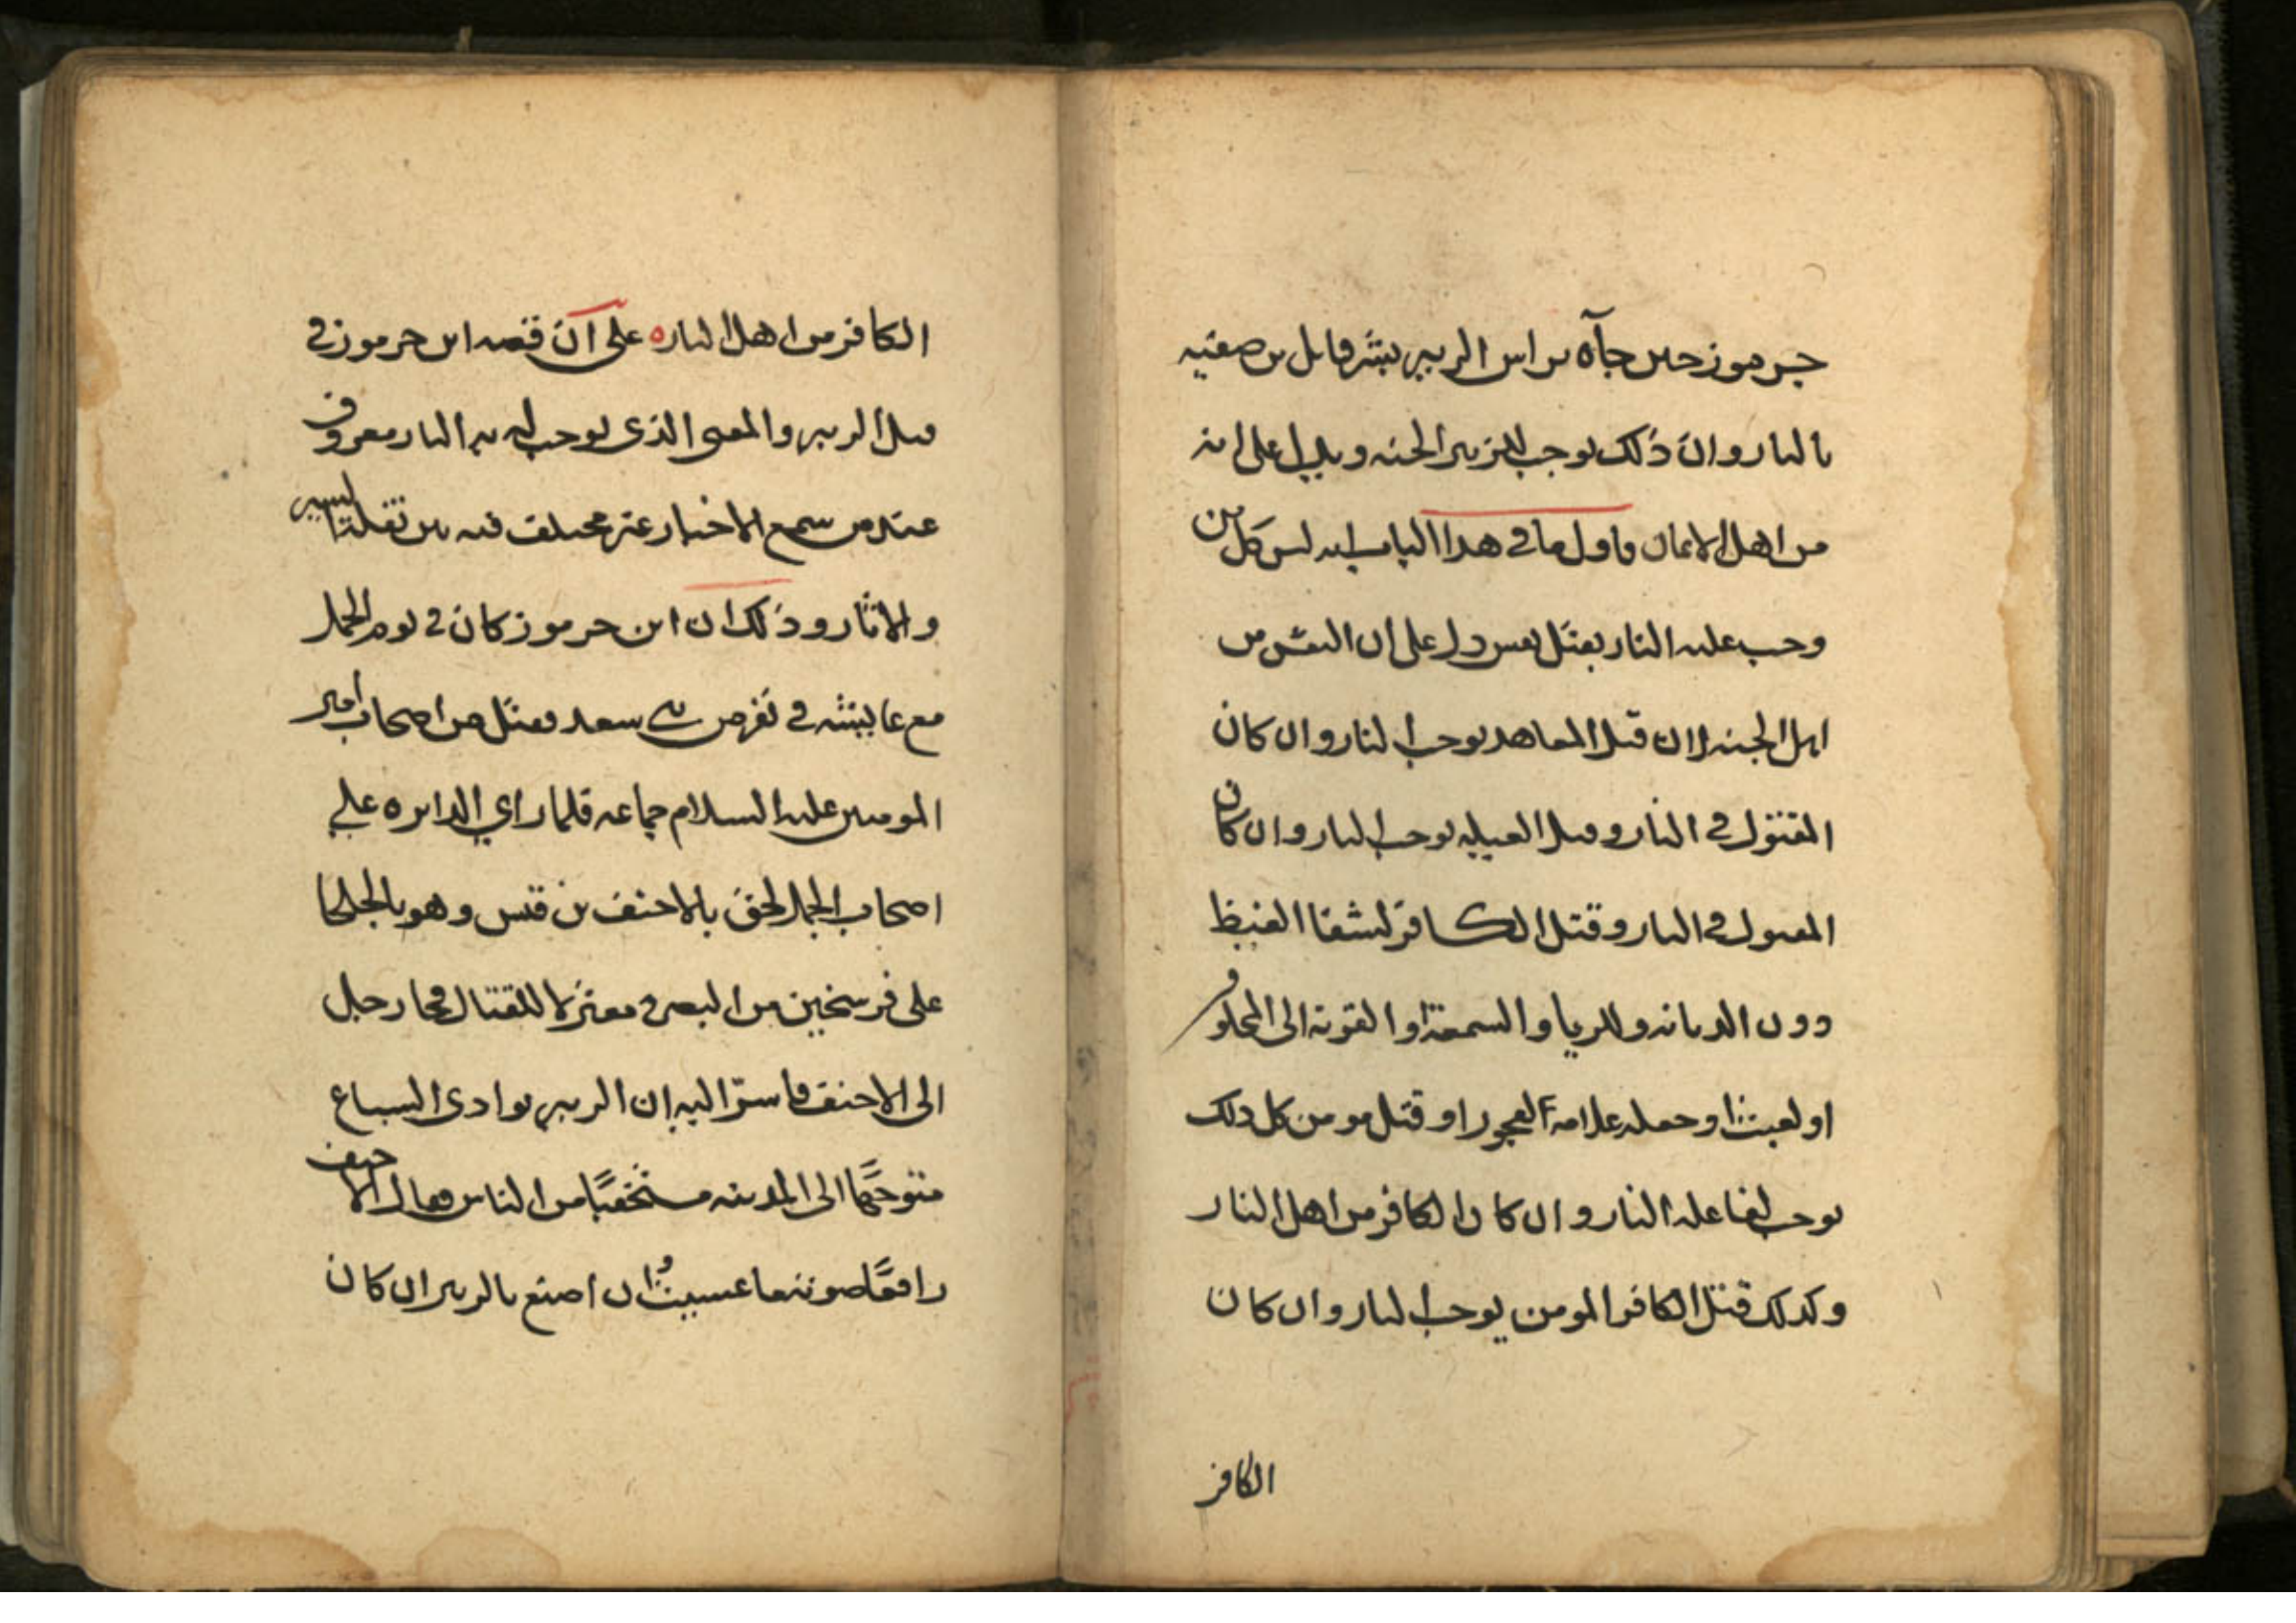 جرموز حين جآه براس الزبير بشر قاتل بن صفيه
بالنار وان ذلك يوجب للزبير الجنه ويدل على انه
من اهل الايمان فاول ما في هذا الباب انه ليس كل من
وجب عليه النار بقتل نفس دل على ان النفس من
اهل الجنه لان قتل المعاهد يوجب النار وان كان
المقتول في النار وقتل الغيله يوجب النار وان كان
المقتول في النار وقتل الكافر لشفا الغيظ
دون الديانه وللريا والسمعة او القربه الى المخلوق
او لعبثا او جعله علامة الفجور او قتل مومن كل ذلك
يوجب لفاعله النار وان كان الكافر من اهل النار
وكذلك قتل الكافر المومن يوجب النار وان كان
الكافر
الكافر من اهل النار ه على ان قصه ابن جرموز في
قتل الزبير والمعنى الذي يوجب له به النار معروف
عند من سمع الاخبار غير مختلف فيه بين نقلة السير
والاثار وذلك ان ابن جرموز كان في يوم الجمل
مع عايشه في نفر من بني سعد فقتل من اصحاب امير
المومنين عليه السلام جماعه فلما راي الدايره علي
اصحاب الجمل لحق بالاحنف بن قيس وهو بالجلحا
على فرسخين من البصره معتزلا للقتال فجا رجل
الى الاحنف فاسرّ اليه ان الزبير بوادى السباع
متوجهًا الى المدينه مستخفيًا من الناس فقال الاحنف
رافعًا صوته ما عسيتُ ان اصنع بالزبير ان كان